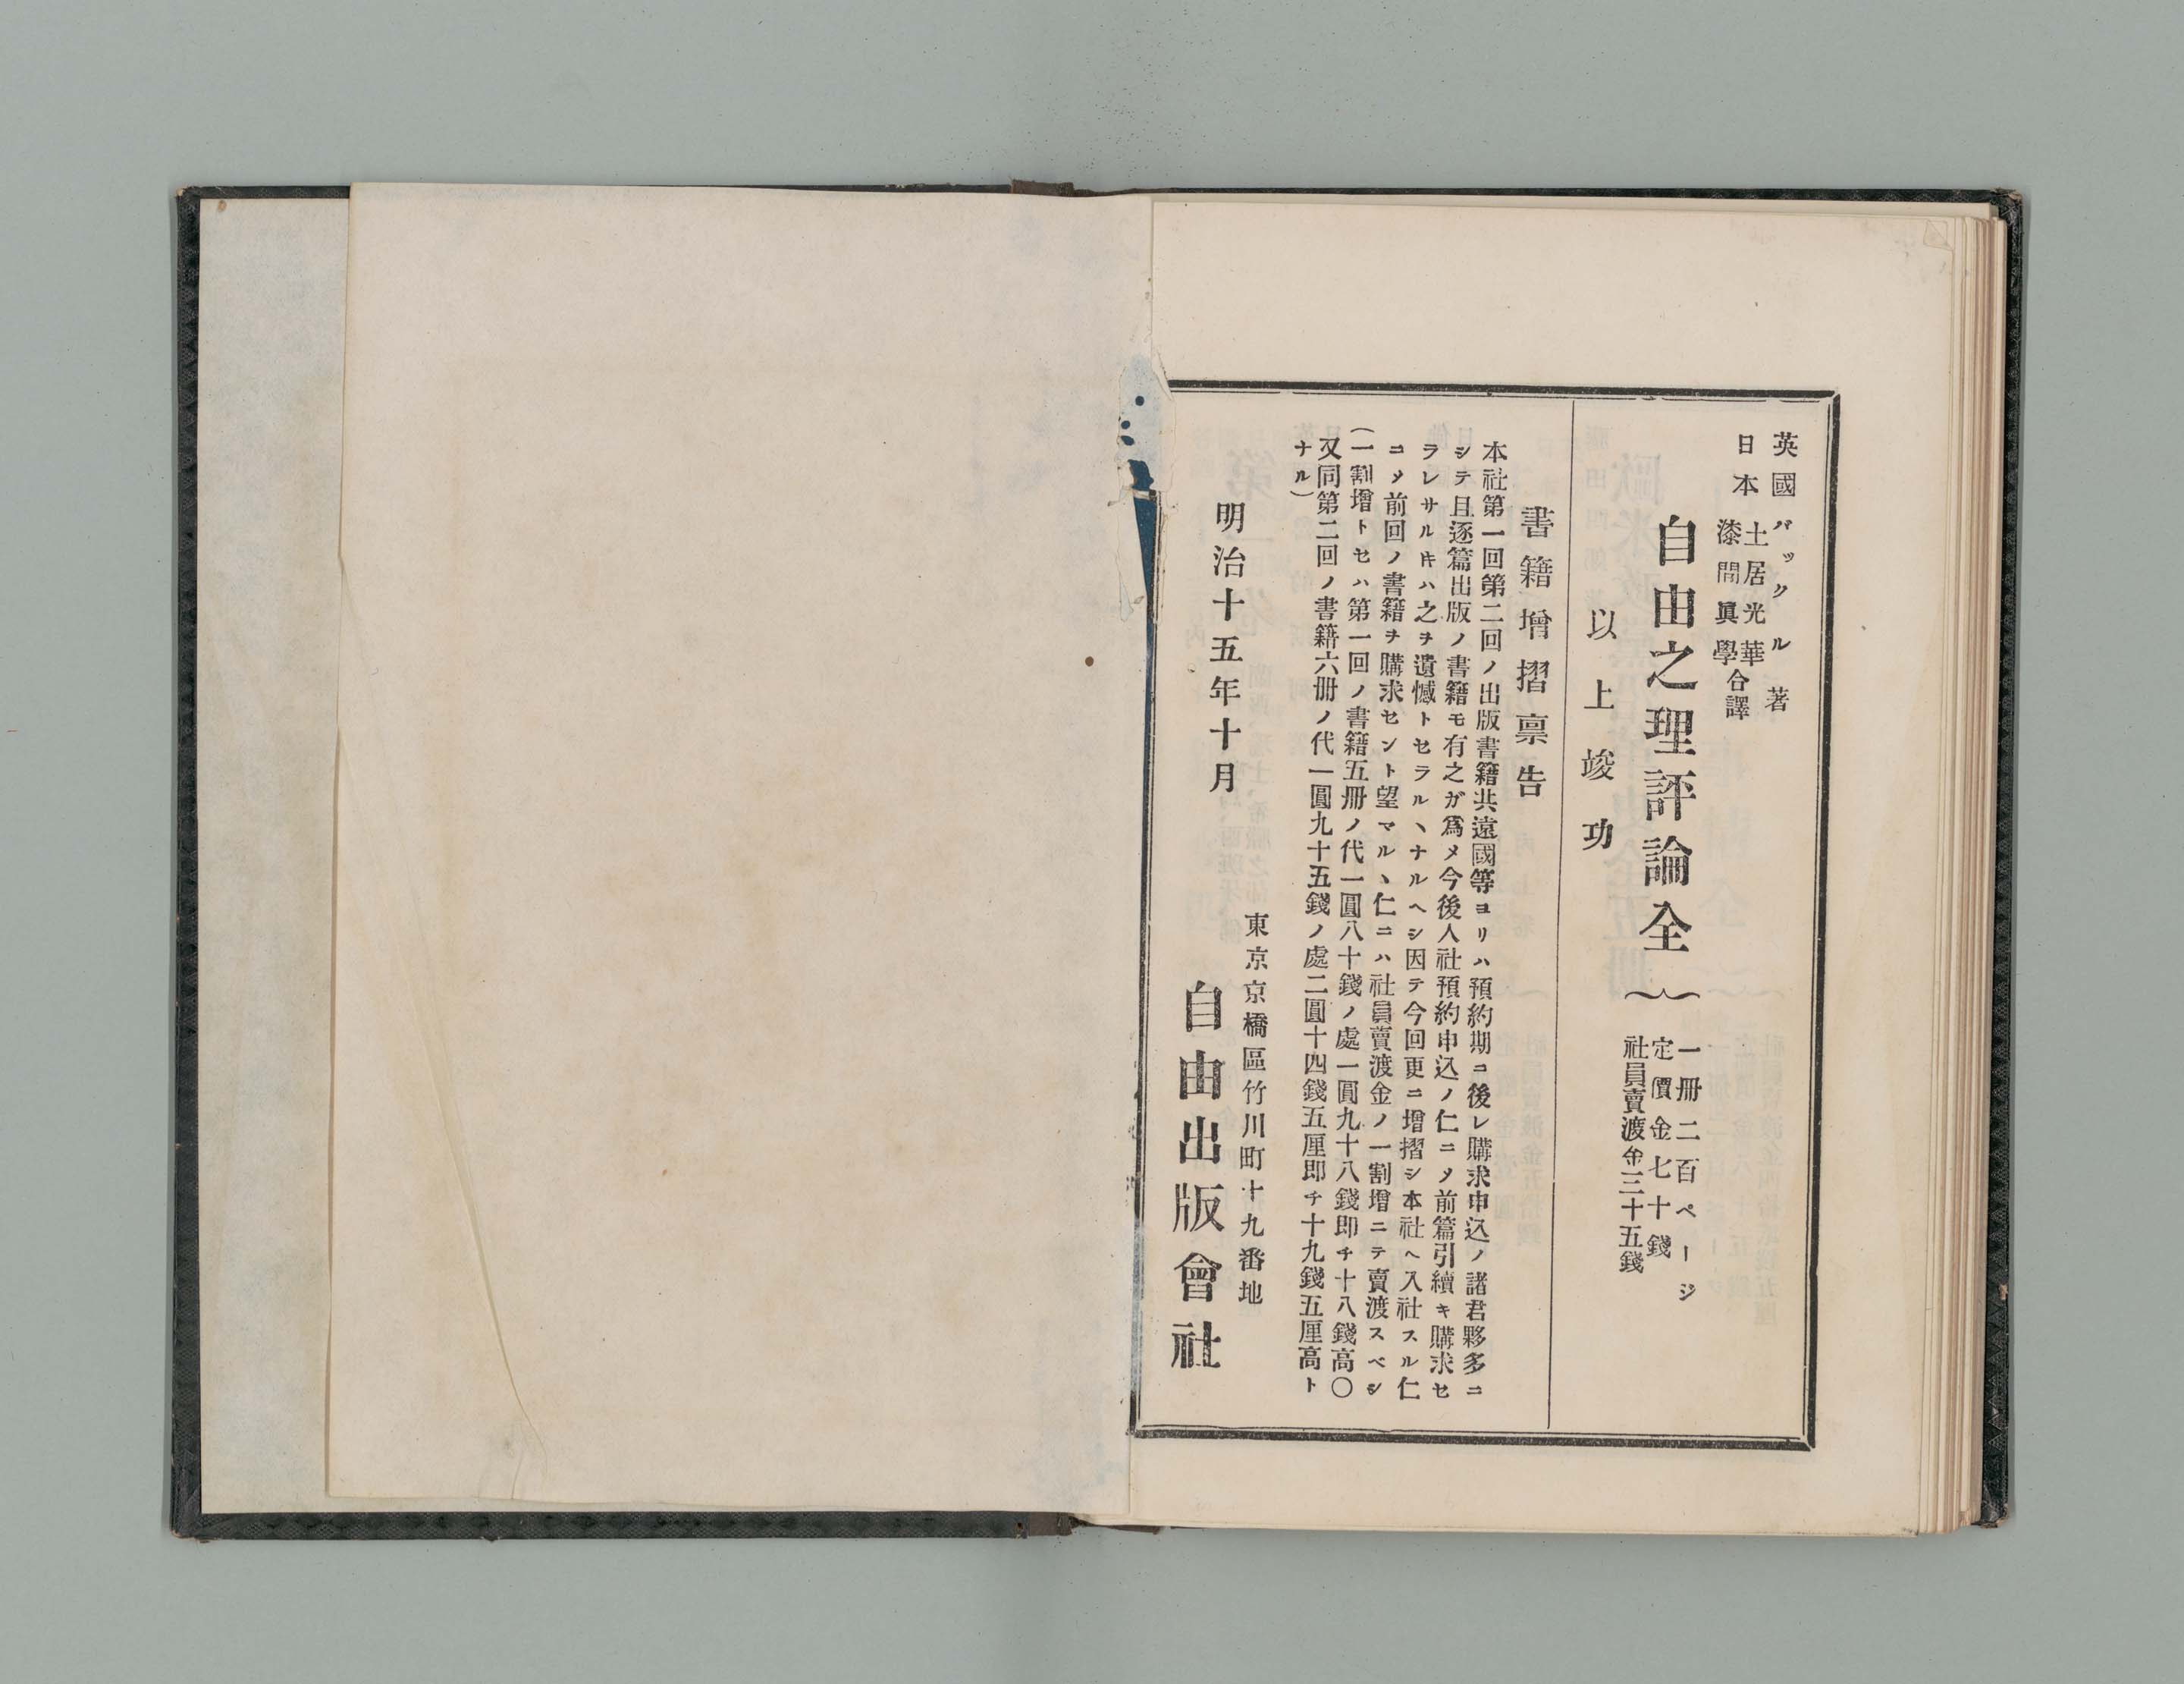 英國 バックル 著
日本 土居光華
漆間眞學 合譯
自由之理評論 全
一册二百ページ
定價金七十錢
社員賣渡金三十五錢
以上竣功
書籍增摺禀告
本社第一回第二回ノ出版書籍共遠國等ヨリハ預約期ニ後レ購求申込ノ諸君夥多ニ
シテ且逐篇出版ノ書籍モ有之ガ爲メ今後人社預約申込ノ仁ニメ前篇引續キ購求セ
ラレサルキハ之ヲ遺憾トセラルヽナルヘシ因テ今回更ニ增摺シ本社ヘ入社スル仁
ニメ前回ノ書籍ヲ購求センﾄ望マルヽ仁ニハ社員賣渡金ノ一割增ニテ賣渡スベシ
(一割增トセハ第一回ノ書籍五册ノ代一圓八十錢ノ處一圓九十八錢即チ十八錢高〇
又同第二回ノ書籍六册ノ代一圓九十五錢ノ處二圓十四錢五厘即チ十九錢五厘高ト
ナル)
明治十五年十月
東京京橋區竹川町十九番地
自由出版會社